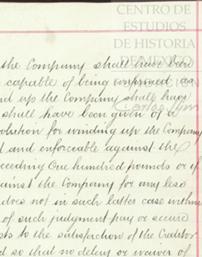 CENTRO DE
ESTUDIOS
DE HISTORIA
the Company shall have been
capable of being enforced as
up the Company shall have
shall have been given of a
solution for winding up the Company
and enforceable against the
ceeding One hundred pounds or if
ainst the Company for any less
does not in such latter case within
of such judgment pay or secure
to the satisfaction of the Creditor
so that no delay or waiver of